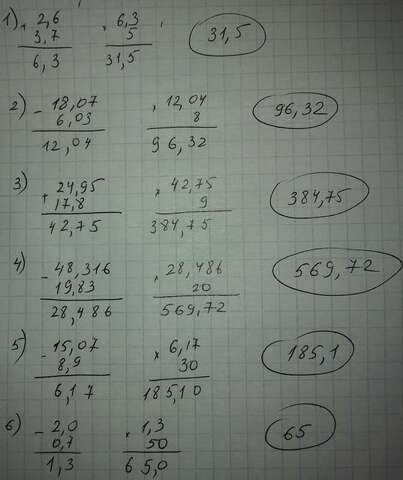 1) + 2,6 × 6,3 31,5
3,7 5
6,3 31,5
2) - 18,07 × 12,04 96,32
6,03 8
12,04 96,32
3) + 24,95 × 42,75 384,75
17,8 9
42,75 384,75
4) - 48,316 × 28,486 569,72
19,83 20
28,486 569,72
5) - 15,07 × 6,17 185,1
8,9 30
6,17 185,10
6) - 2,0 × 1,3 65
0,7 50
1,3 65,0